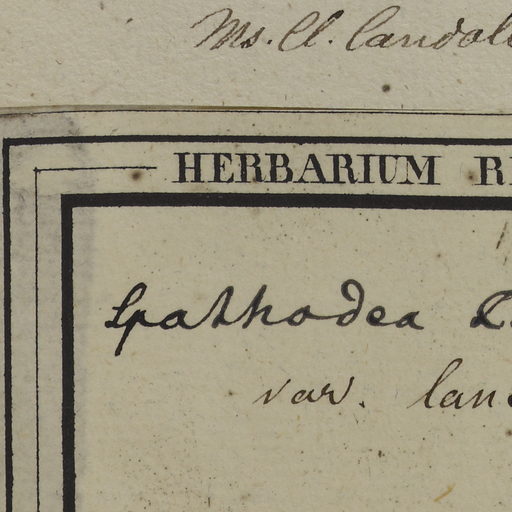 Ms. Cl. Candol
HERBARIUM R
Spathodea
var. lan